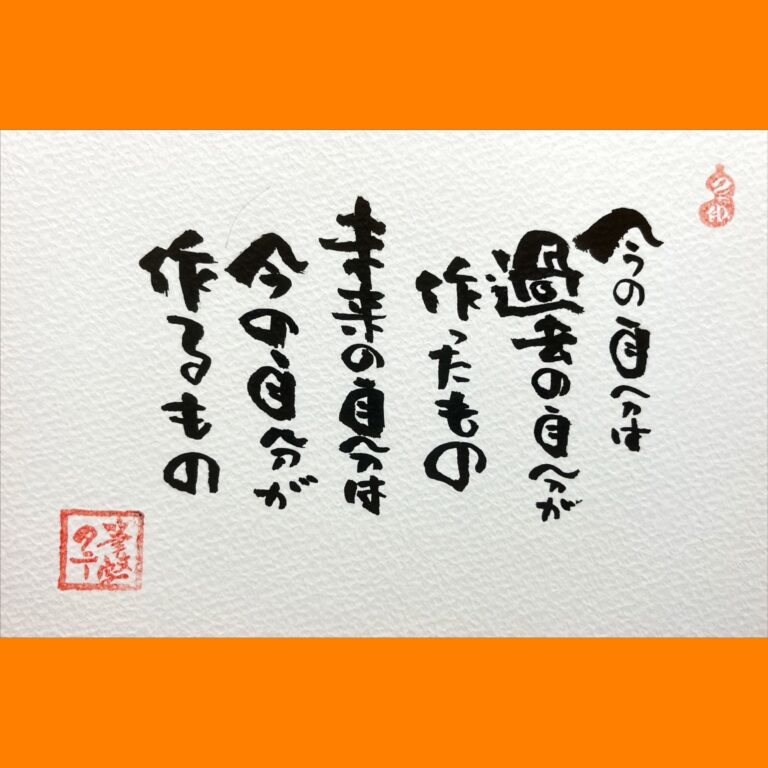 今の自分は
過去の自分が
作ったもの
未来の自分は
今の自分が
作るもの